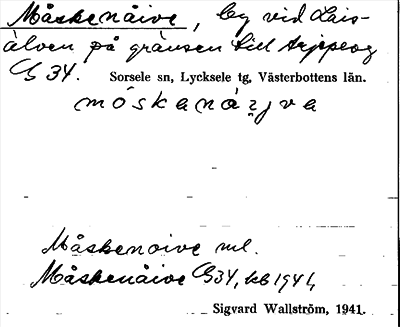 Måskenåive, by vid Lais-
älven på gränsen till Arjeplog
G 34. Sorsele sn, Lycksele tg, Västerbottens län.
Måskenoive ml.
Måskenåive G34, bb 1941,
Sigvard Wallström, 1941.